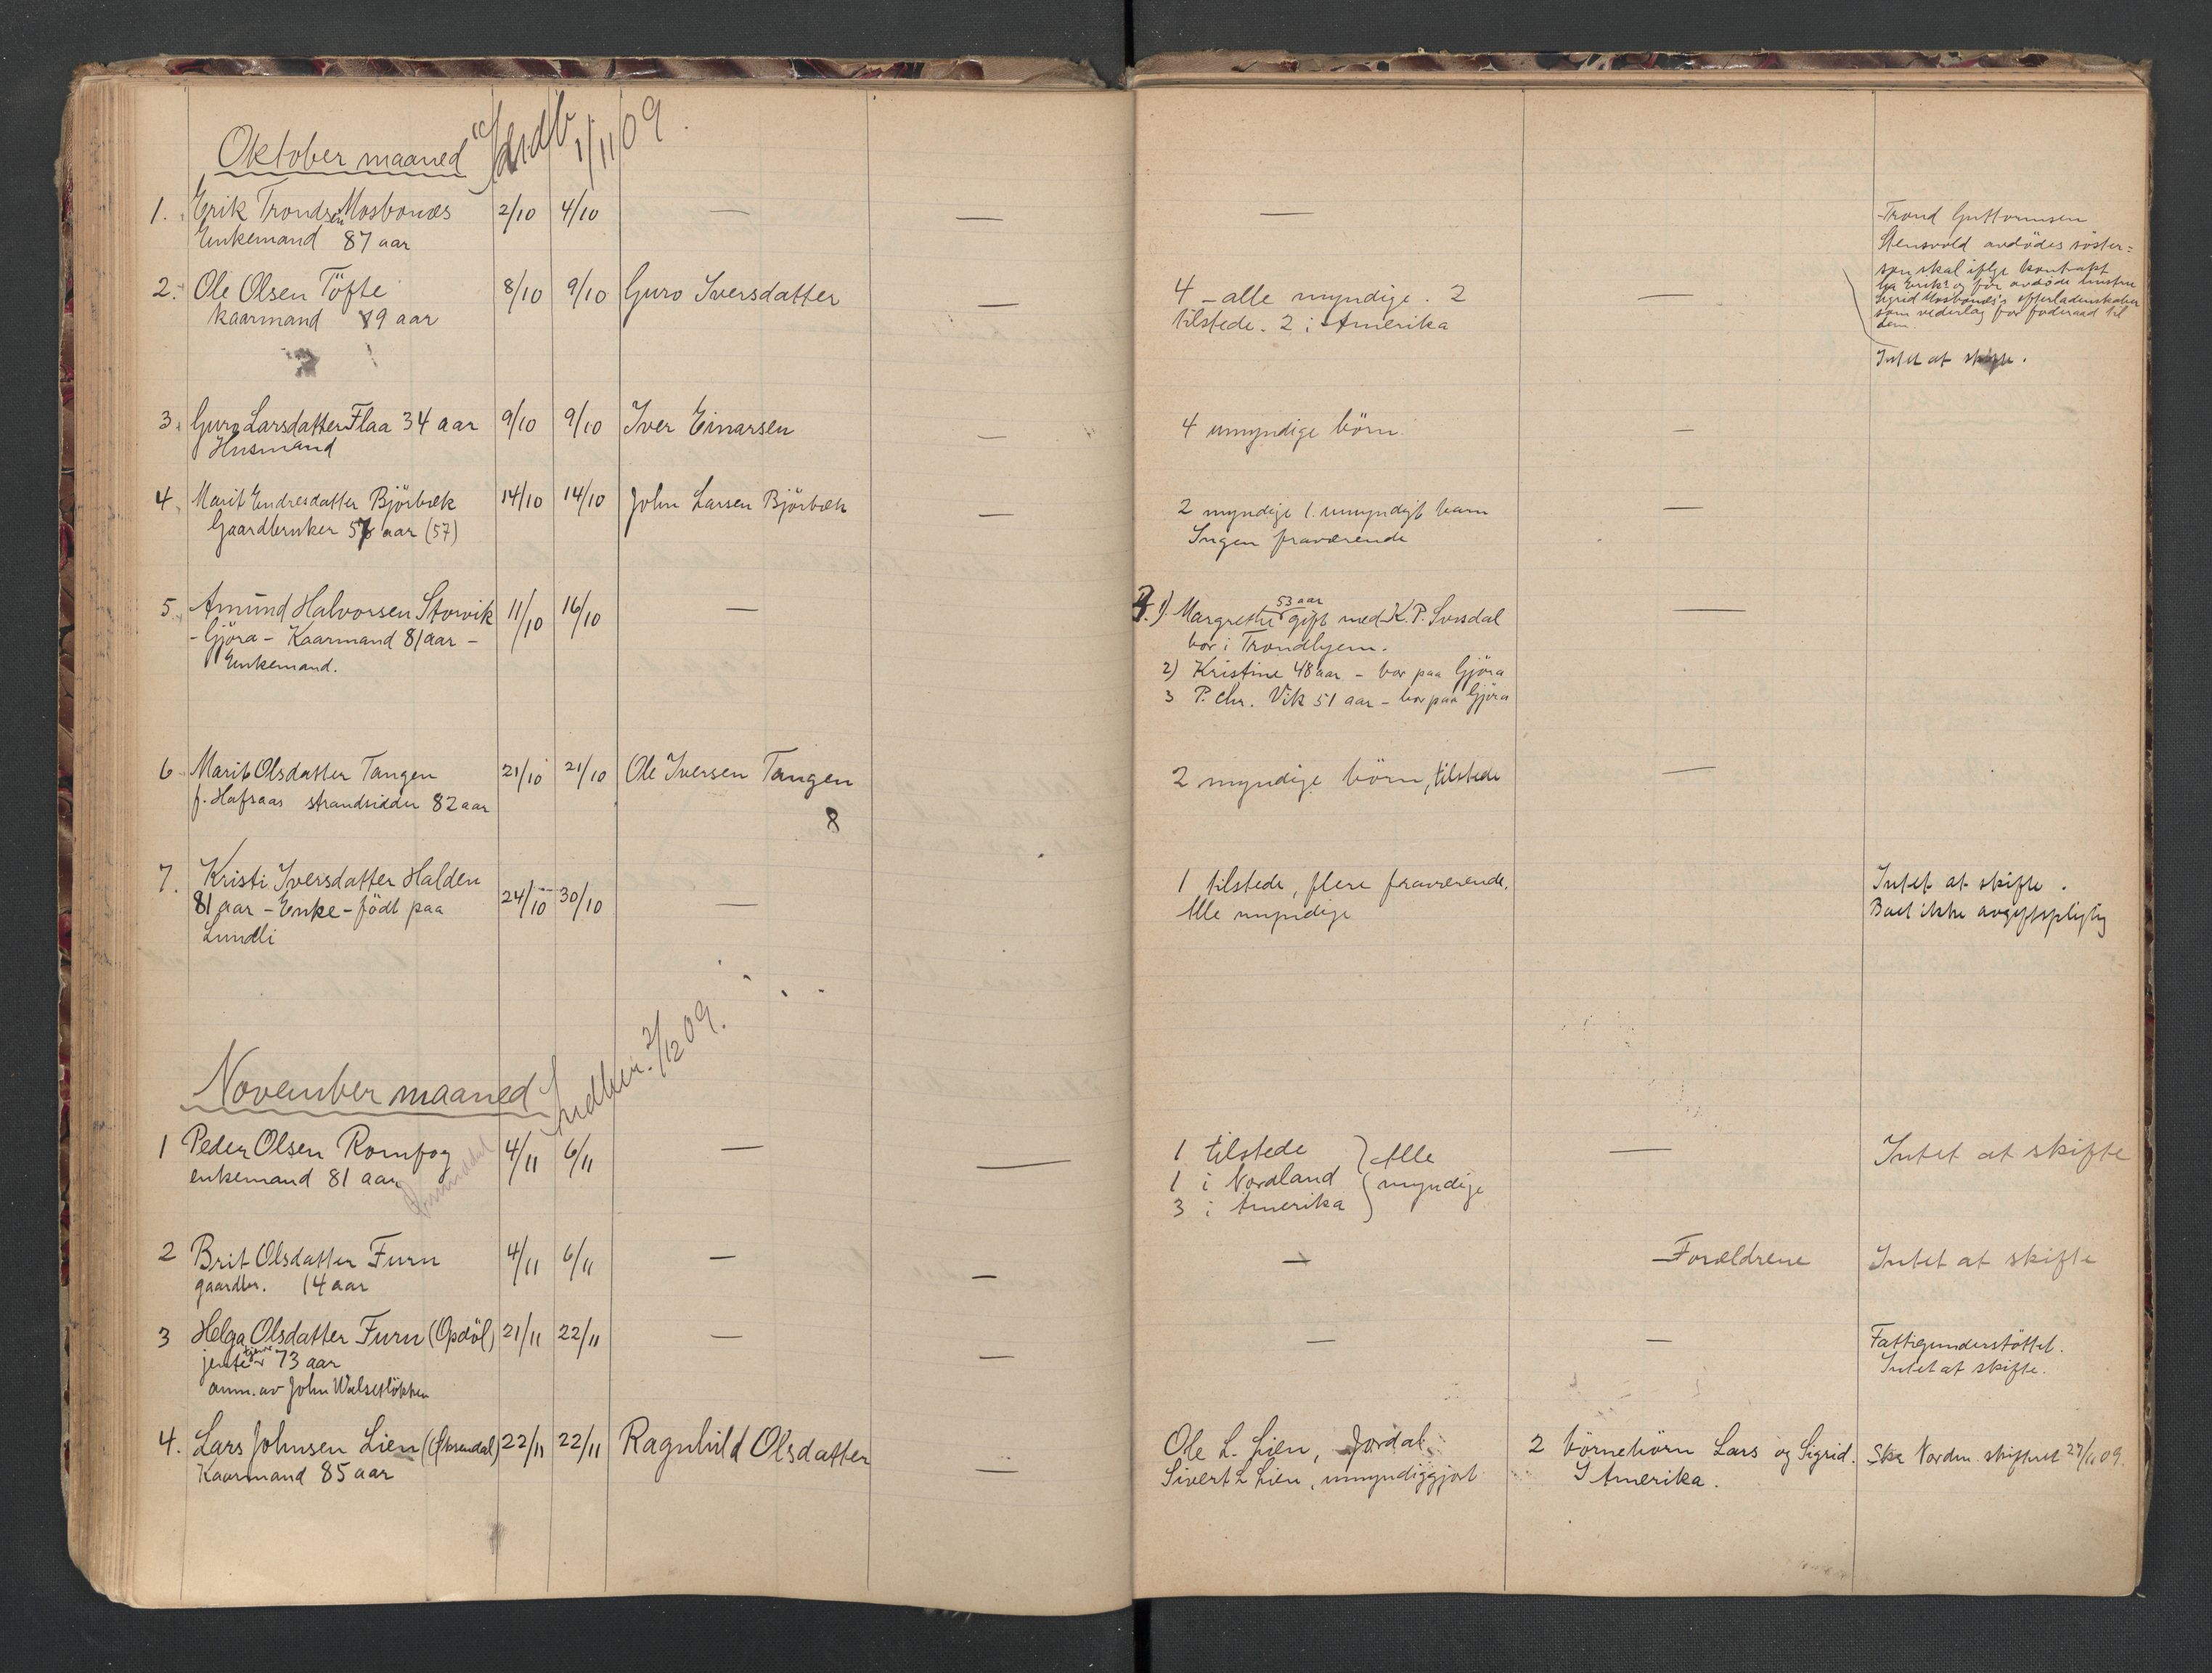 Oktober maaned Indb. 1/11 09.
1. Erik Trondsen Mosbonæs 2/10 4/10 — — —
Enkemand 87 aar
Trond Guttormsen
Stensvold avdödes söster=
sön skal ifølge kontrakt
ha Erik's og før avdöde hustru
Sigrid Mosbonæs's efterladenskaber
som vederlag for föderaad til
dem.
2. Ole Olsen Töfte 8/10 9/10 Guro Iversdatter — 4 – alle myndige. 2 —
Kaarmand 89 aar tilstede. 2 i Amerika
Intet at skifte.
3. Guro Larsdatter Flaa 34 aar 9/10 9/10 Iver Einarsen — 4 umyndige börn. —
Husmand
4. Marit Endresdatter Björbæk 14/10 14/10 John Larsen Björbæk — 2 myndige 1 umyndigt barn —
Gaardbruker 57 aar (57) Ingen fraværende
5. Amund Halvorsen Storvik 11/10 16/10 — 1). Margrethe 53 aar gift med K. P. Svisdal —
- Gjöra - Kaarmand 81 aar - bor i Trondhjem.
Enkemand. 2) Kristine 48 aar - bor paa Gjöra
3 P. Chr. Vik 51 aar - bor paa Gjöra
6. Marit Olsdatter Tangen 21/10 21/10 Ole Iversen Tangen 2 myndige börn, tilstede —
f. Hafsaas strandsidder 82 aar
8
7. Kristi Iversdatter Halden 24/10 30/10 — 1 tilstede, flere fraværende. Intet at skifte.
81 aar - Enke - född paa Alle myndige Boet ikke avgiftspligtig
Lundli
November maaned Indber. 2/12 09.
1 Peder Olsen Romfog 4/11 6/11 — — 1 tilstede } Alle — Intet at skifte
enkemand 81 aar 1 i Nordland } myndige
3 i Amerika
2 Brit Olsdatter Furu 4/11 6/11 — — — Forældrene Intet at skifte
gaardbr. 14 aar
3 Helga Olsdatter Furu (Opdöl) 21/11 22/11 — — — — Fattigunderstöttet.
jente 73 aar Intet at skifte.
anm. av John Walsetlökken
4. Lars Johnsen Lien (Øksendal) 22/11 22/11 Ragnhild Olsdatter — Ole L. Lien, Jordal 2 börnebörn Lars og Sigrid. Ska Nordm. skifteret 27/11 09.
Kaarmand 85 aar Sivert L Lien, umyndiggjort I Amerika.